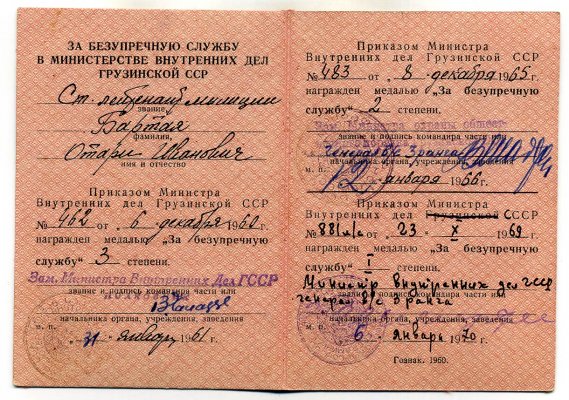 ЗА БЕЗУПРЕЧНУЮ СЛУЖБУ
В МИНИСТЕРСТВЕ ВНУТРЕННИХ ДЕЛ
ГРУЗИНСКОЙ ССР
Ст. лейтенант милиции
звание,
Бартая
фамилия,
Отари Иванович
имя и отчество
Приказом Министра
Внутренних дел Грузинской ССР
№ 462 от 6 декабря 1960 г.
награжден медалью „За безупречную
службу" 3 степени.
Зам. Министра Внутренних Дел ГССР
звание и подпись командира части или
начальника органа, учреждения, заведения
м. п. 31 январь 1961 г.
Приказом Министра
Внутренних дел Грузинской ССР
№ 483 от 8 декабря 1965 г.
награжден медалью „За безупречную
службу" 2 степени.
Зам. Министра охраны общест.
звание и подпись командира части или
начальника органа, учреждения, заведения
12 января 1966 г.
Приказом Министра
Внутренних дел Грузинской СССР
№ 881 л/с от 23 X 1969 г.
награжден медалью „За безупречную
службу" I степени.
Министр внутренних дел ГССР
звание и подпись командира части или
генерал
начальника органа, учреждения, заведения
м. п. 6 января 1970 г.
Гознак. 1960.